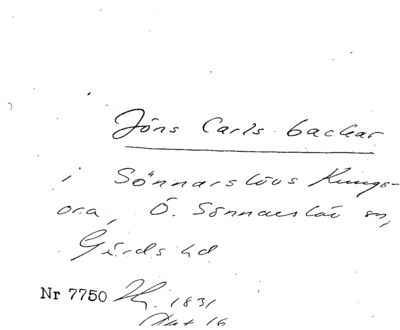 Jöns Carls backar
i Sönnarslövs Kungs-
ora, Ö. Sönnarslöv sn,
Gärds hd
Nr 7750 1831
16